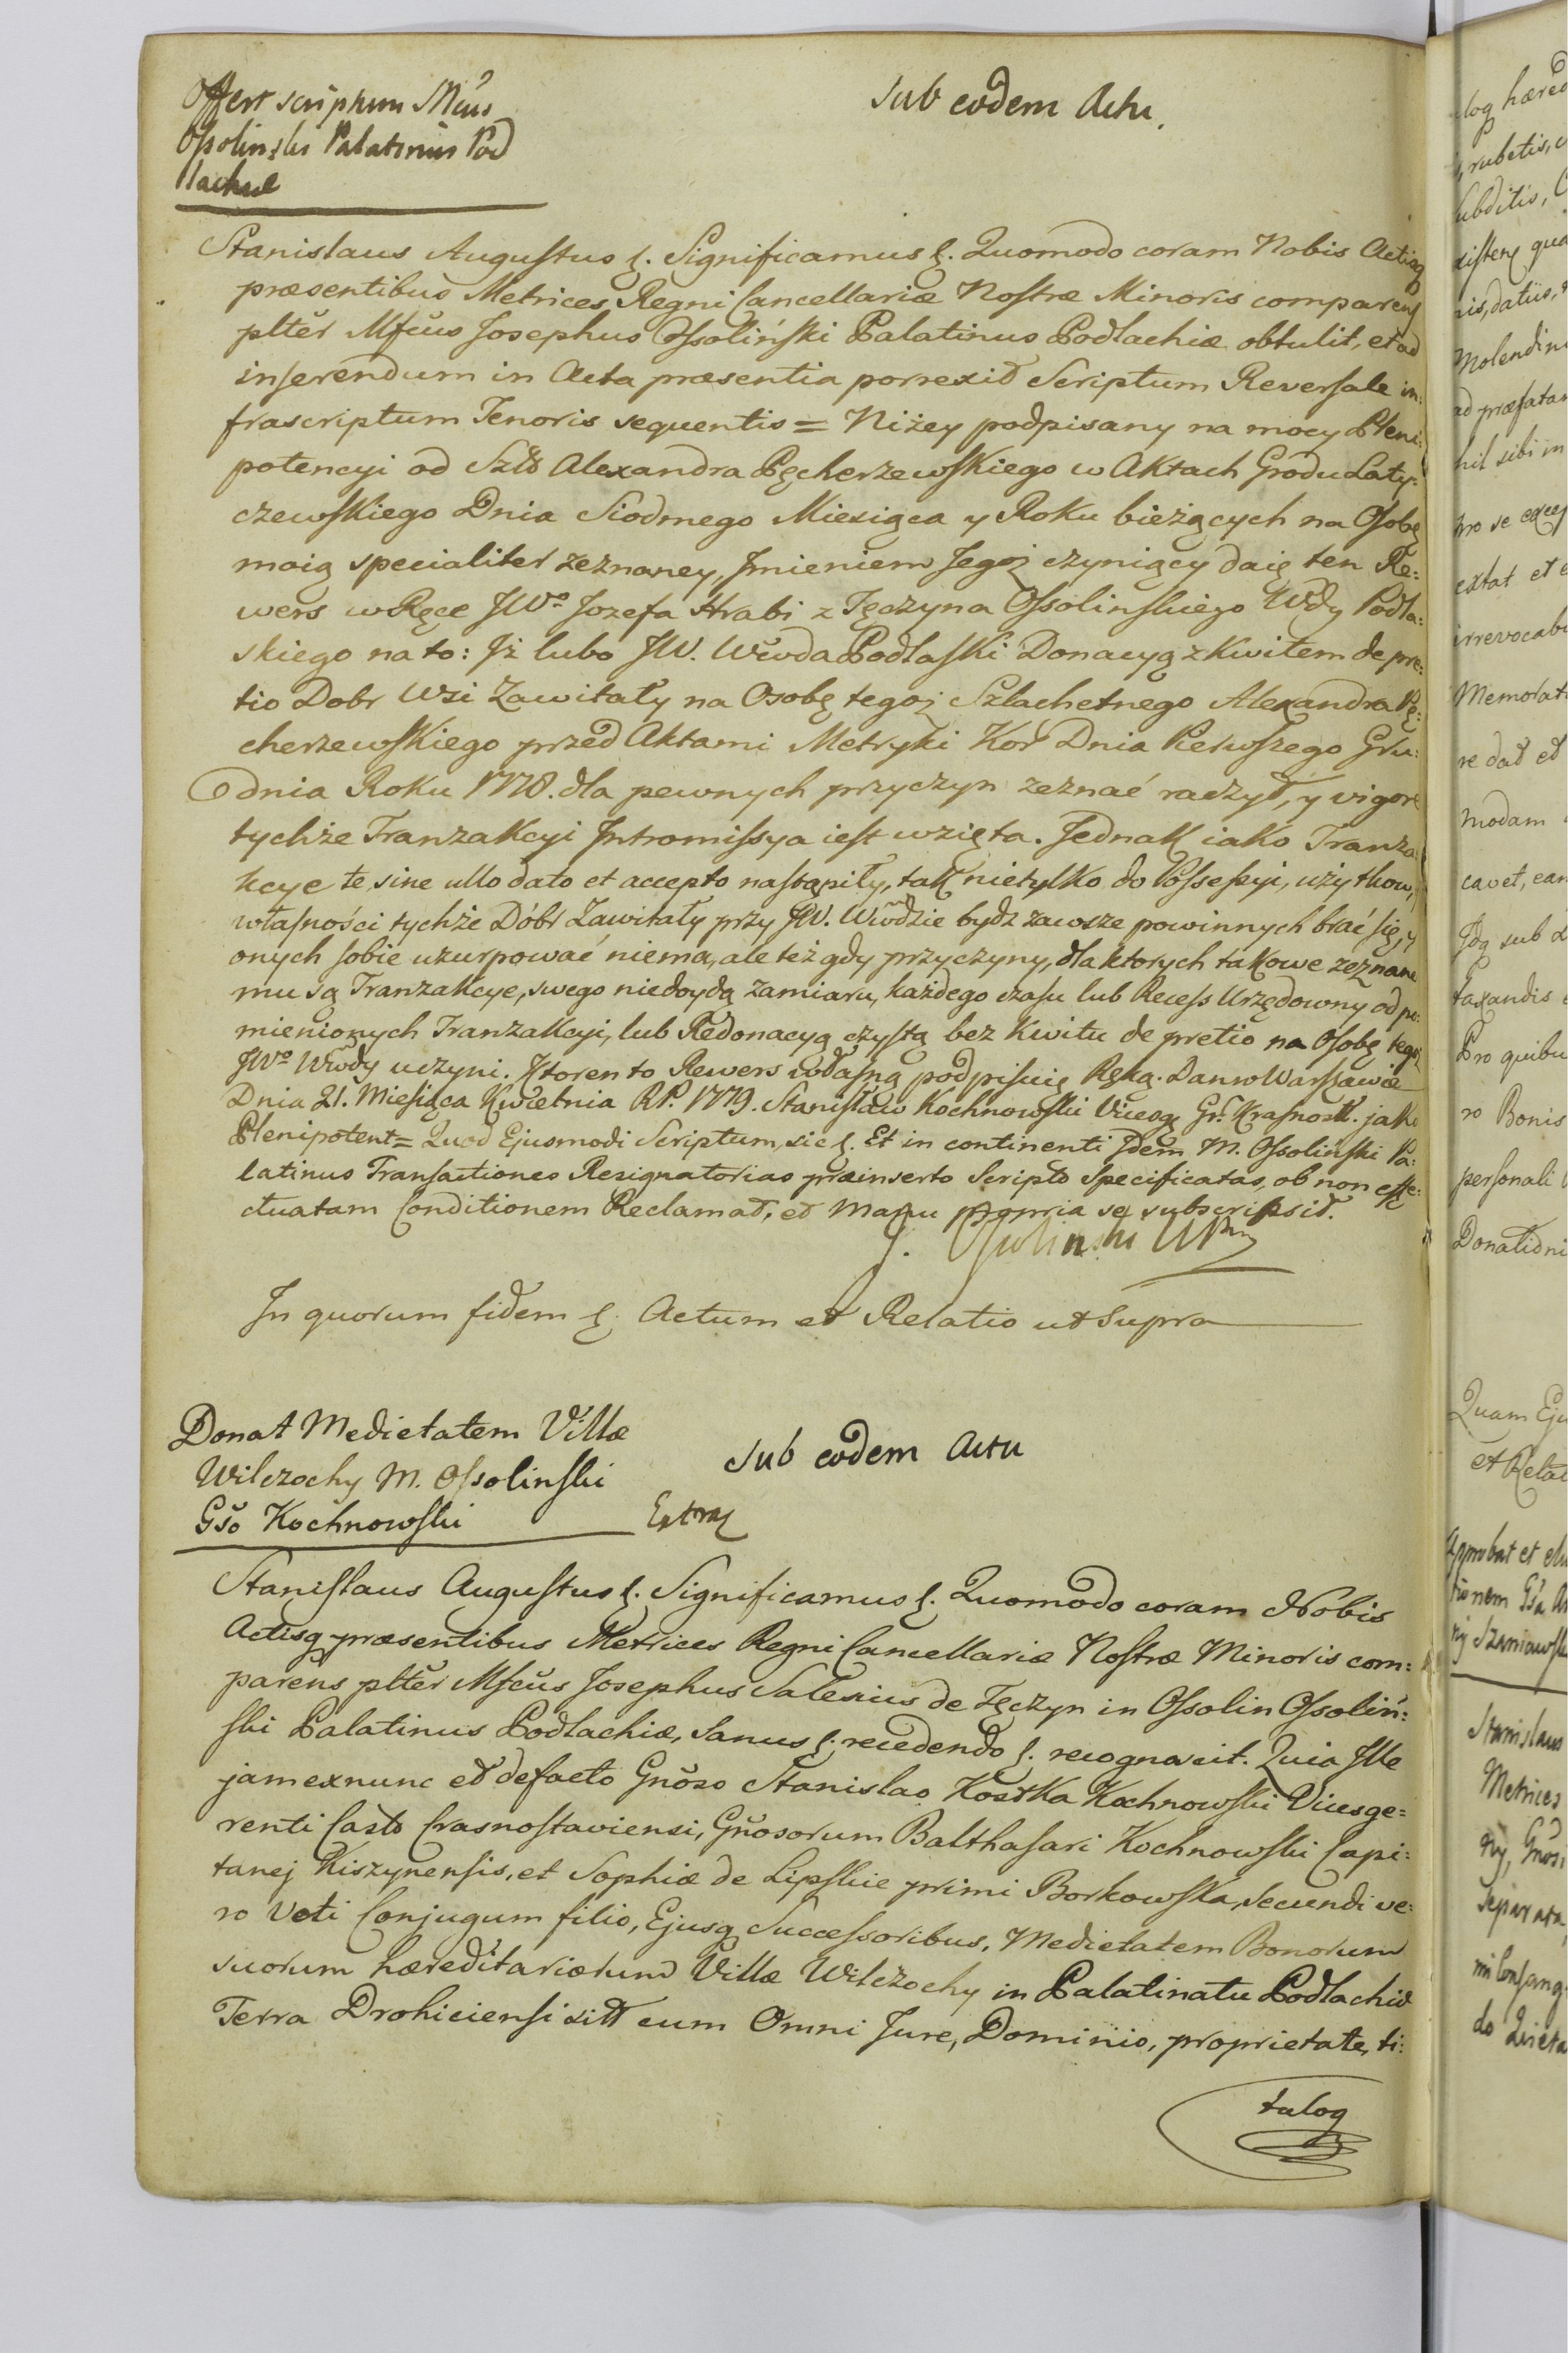 Offert scriptum Mcus
Ossolinski Palatinus Pod
lachiæ
Sub eodem Actu.
Stanislaus Augustus &. Significamus &. Quomodo coram Nobis Actisq
præsentibus Metrices Regni Cancellariæ Nostræ Minoris comparens
plter Mfcus Josephus Ossoliński Palatinus Podlachiæ obtulit, et ad
inserendum in Acta præsentia porrexit Scriptum Reversale in:
frascriptum Tenoris sequentis = Niżey podpisany na mocy Pleni:
potencyi od Szltt Alexandra Pęcherzewskiego w Aktach Grodu Laty:
czewskiego Dnia Siodmego Miesiąca y Roku bieżących na Osobę
moią specialiter zeznaney, Jmieniem Jegoż czyniący daię ten Re:
wers w Ręce JWo Jozefa Hrabi z Tęczyna Ossolinskiego Wdy Podla:
skiego na to: Jż lubo JW. Wwoda Podlaski Donacyą z Kwitem de pre:
tio Dobr Wsi Zawitały na Osobę tegoż Szlachetnego Alexandra Pę:
cherzewskiego przed Aktami Metryki Kor Dnia Pierwszego Gru:
dnia Roku 1778. dla pewnych przyczyn zeznać raczył, y vigore
tychże Tranzakcyi Intromissya iest wzięta. Jednak iako Tranza
kcye te sine ullo dato et accepto nastąpiły, tak nietylko do Possessyi, użytkow,
własności tychże Dóbr Zawitały przy JW. Wwodzie bydź zawsze powinnych brać się, y
onych sobie uzurpować niema, ale też gdy przyczyny, dla ktorych takowe zeznane
mu są Tranzakcye, swego niedoydą zamiaru, każdego czasu lub Recess Urzędowny od po:
mienionych Tranzakcyi, lub Redonacyą czystą bez Kwitu de pretio na Osobę tegoż
JWo Wwody uczyni. Ktoren to Rewers własną podpisuię Ręką. Dan w Warszawie
Dnia 21. Miesiąca Kwietnia RP. 1779. Stanisław Kochnowski Vicesg Gr. Krasnost. jako
Plenipotent = Quod Ejusmodi Scriptum, sic &. Et in continenti Jdem M. Ossolinski Pa:
latinus Transactiones Resignatorias præinserto Scripto Specificatas, ob non effe:
ctuatam Conditionem Reclamat, et Manu propria se subscripsit.
J. Ossolinski WP
In quorum fidem &. Actum et Relatio ut Supra
Donat Medietatem Villæ
Wilczochy M. Ossolinski
Gso Kochnowski
Sub eodem Actu
Extraz
Stanislaus Augustus &. Significamus &. Quomodo coram Nobis
Actisq præsentibus Metrices Regni Cancellariæ Nostræ Minoris com:
parens plter Mfcus Josephus Salesius de Tęczyn in Ossolin Ossoliń:
ski Palatinus Podlachiæ, Sanus &. recedendo &. recognovit. Quia Jlle
jam exnunc et defacto Gnoso Stanislao Kostka Kochnowski Vicesge=
renti Casto Crasnostaviensi, Gnosorum Balthasari Kochnowski Capi:
tanej Kiszynensis, et Sophiæ de Lipskie primi Borkowska, secundi ve:
ro Voti Conjugum filio, Ejusq Successoribus, Medietatem Bonorum
suorum hæreditariorum Villæ Wilczochy in Palatinatu Podlachiæ
Terra Drohiciensi sitt cum Omni Jure, Dominio, proprietate, ti:
tuloq
log hæred
rubetis, c
subditis,
xistens qua
nis, datiis,
Molendin
ad præfatam
hil sibi in
ro se excep
extat et
irrevocab
Memorat
re dat et
modam
cavet, ean
Jdq sub
taxandis
Pro quibu
ro Bonis
personali
Donationi
Quam Eju
et Relat
Approbat et
tionem Gsa
Stanislaus
Metrices
Separata